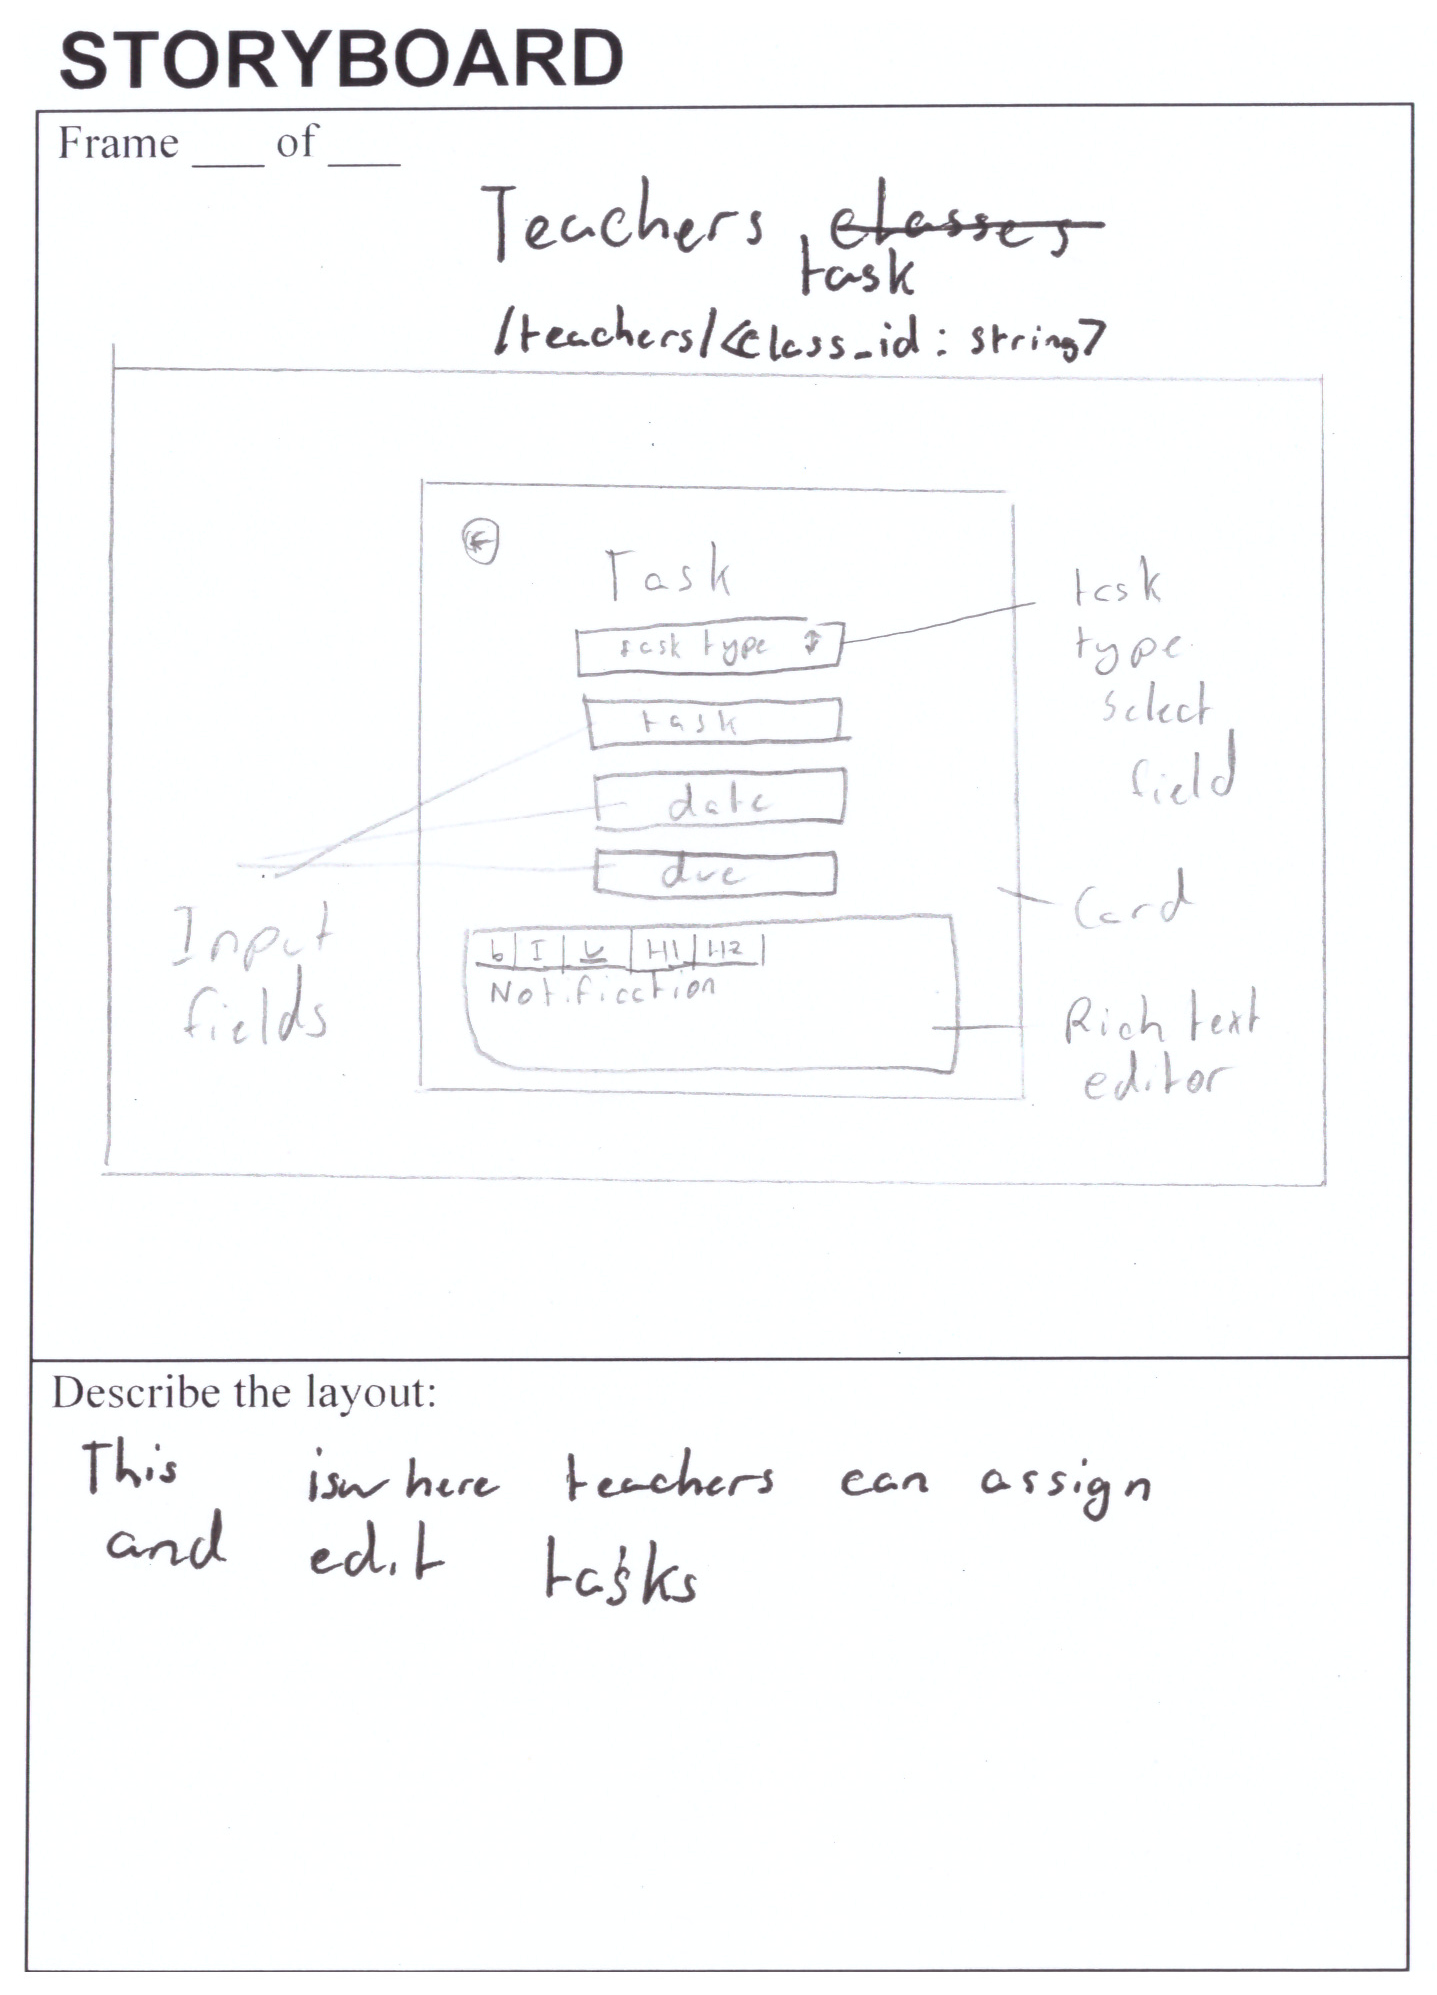 STORYBOARD
Frame ___ of ___
Teachers classes
task
/teachers/<class_id: string>
Task
task type
task
date
due
b I U H1 H2
Notification
task
type
select
field
Card
Input
fields
Rich text
editor
Describe the layout:
This is where teachers can assign
and edit tasks